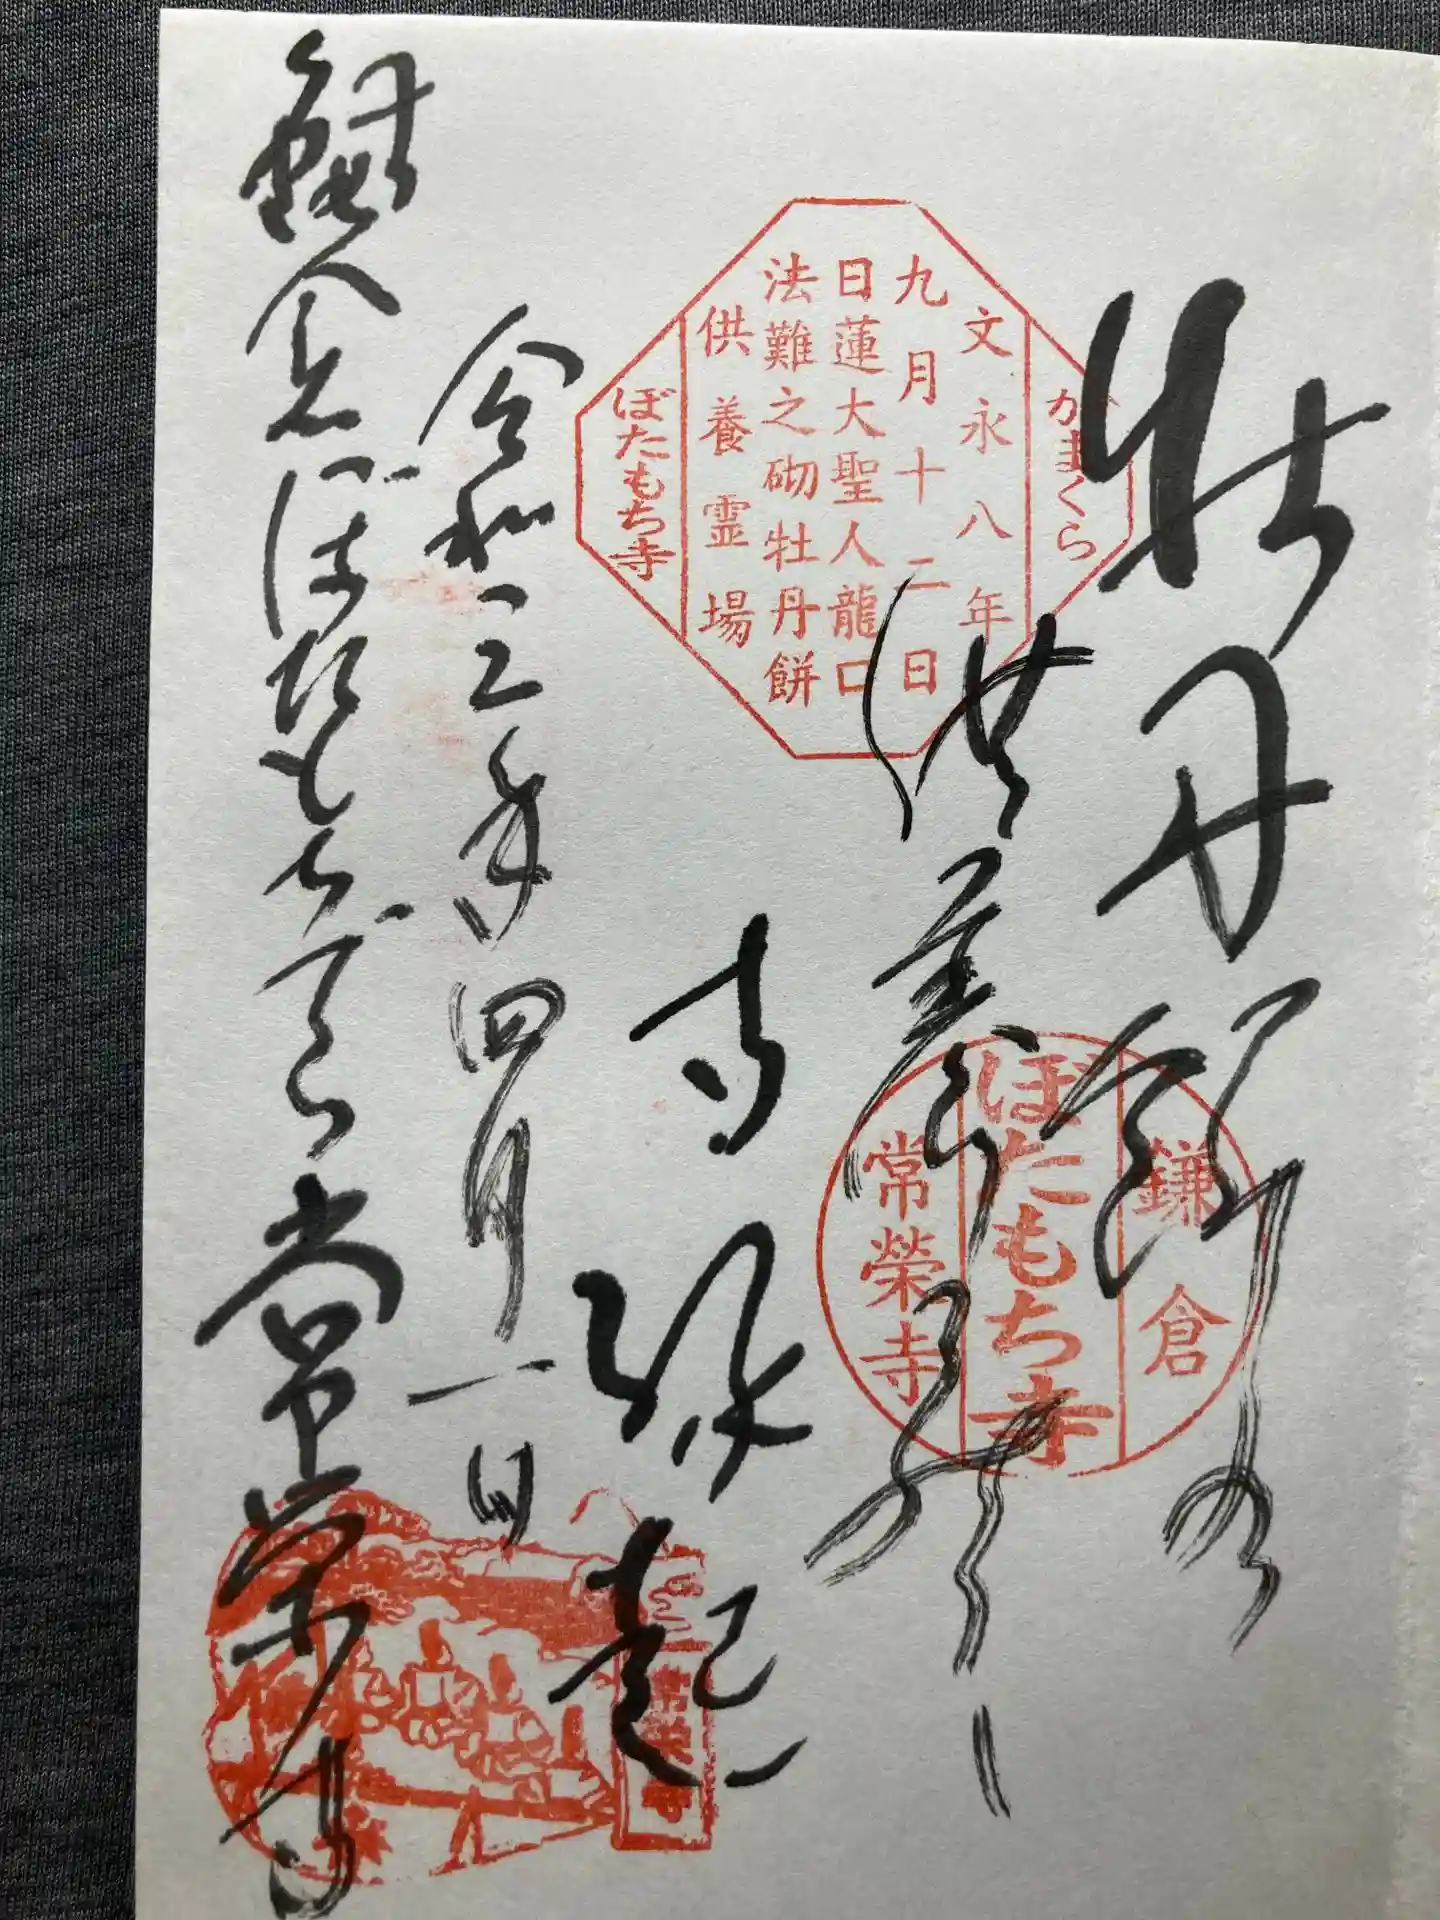 牡丹餅の
供養
寺縁起
令和三年四月一日
鎌倉ぼたもち寺常栄寺
かまくら
文永八年
九月十二日
日蓮大聖人龍口
法難之砌牡丹餅
供養霊場
ぼたもち寺
鎌倉
ぼたもち寺
常榮寺